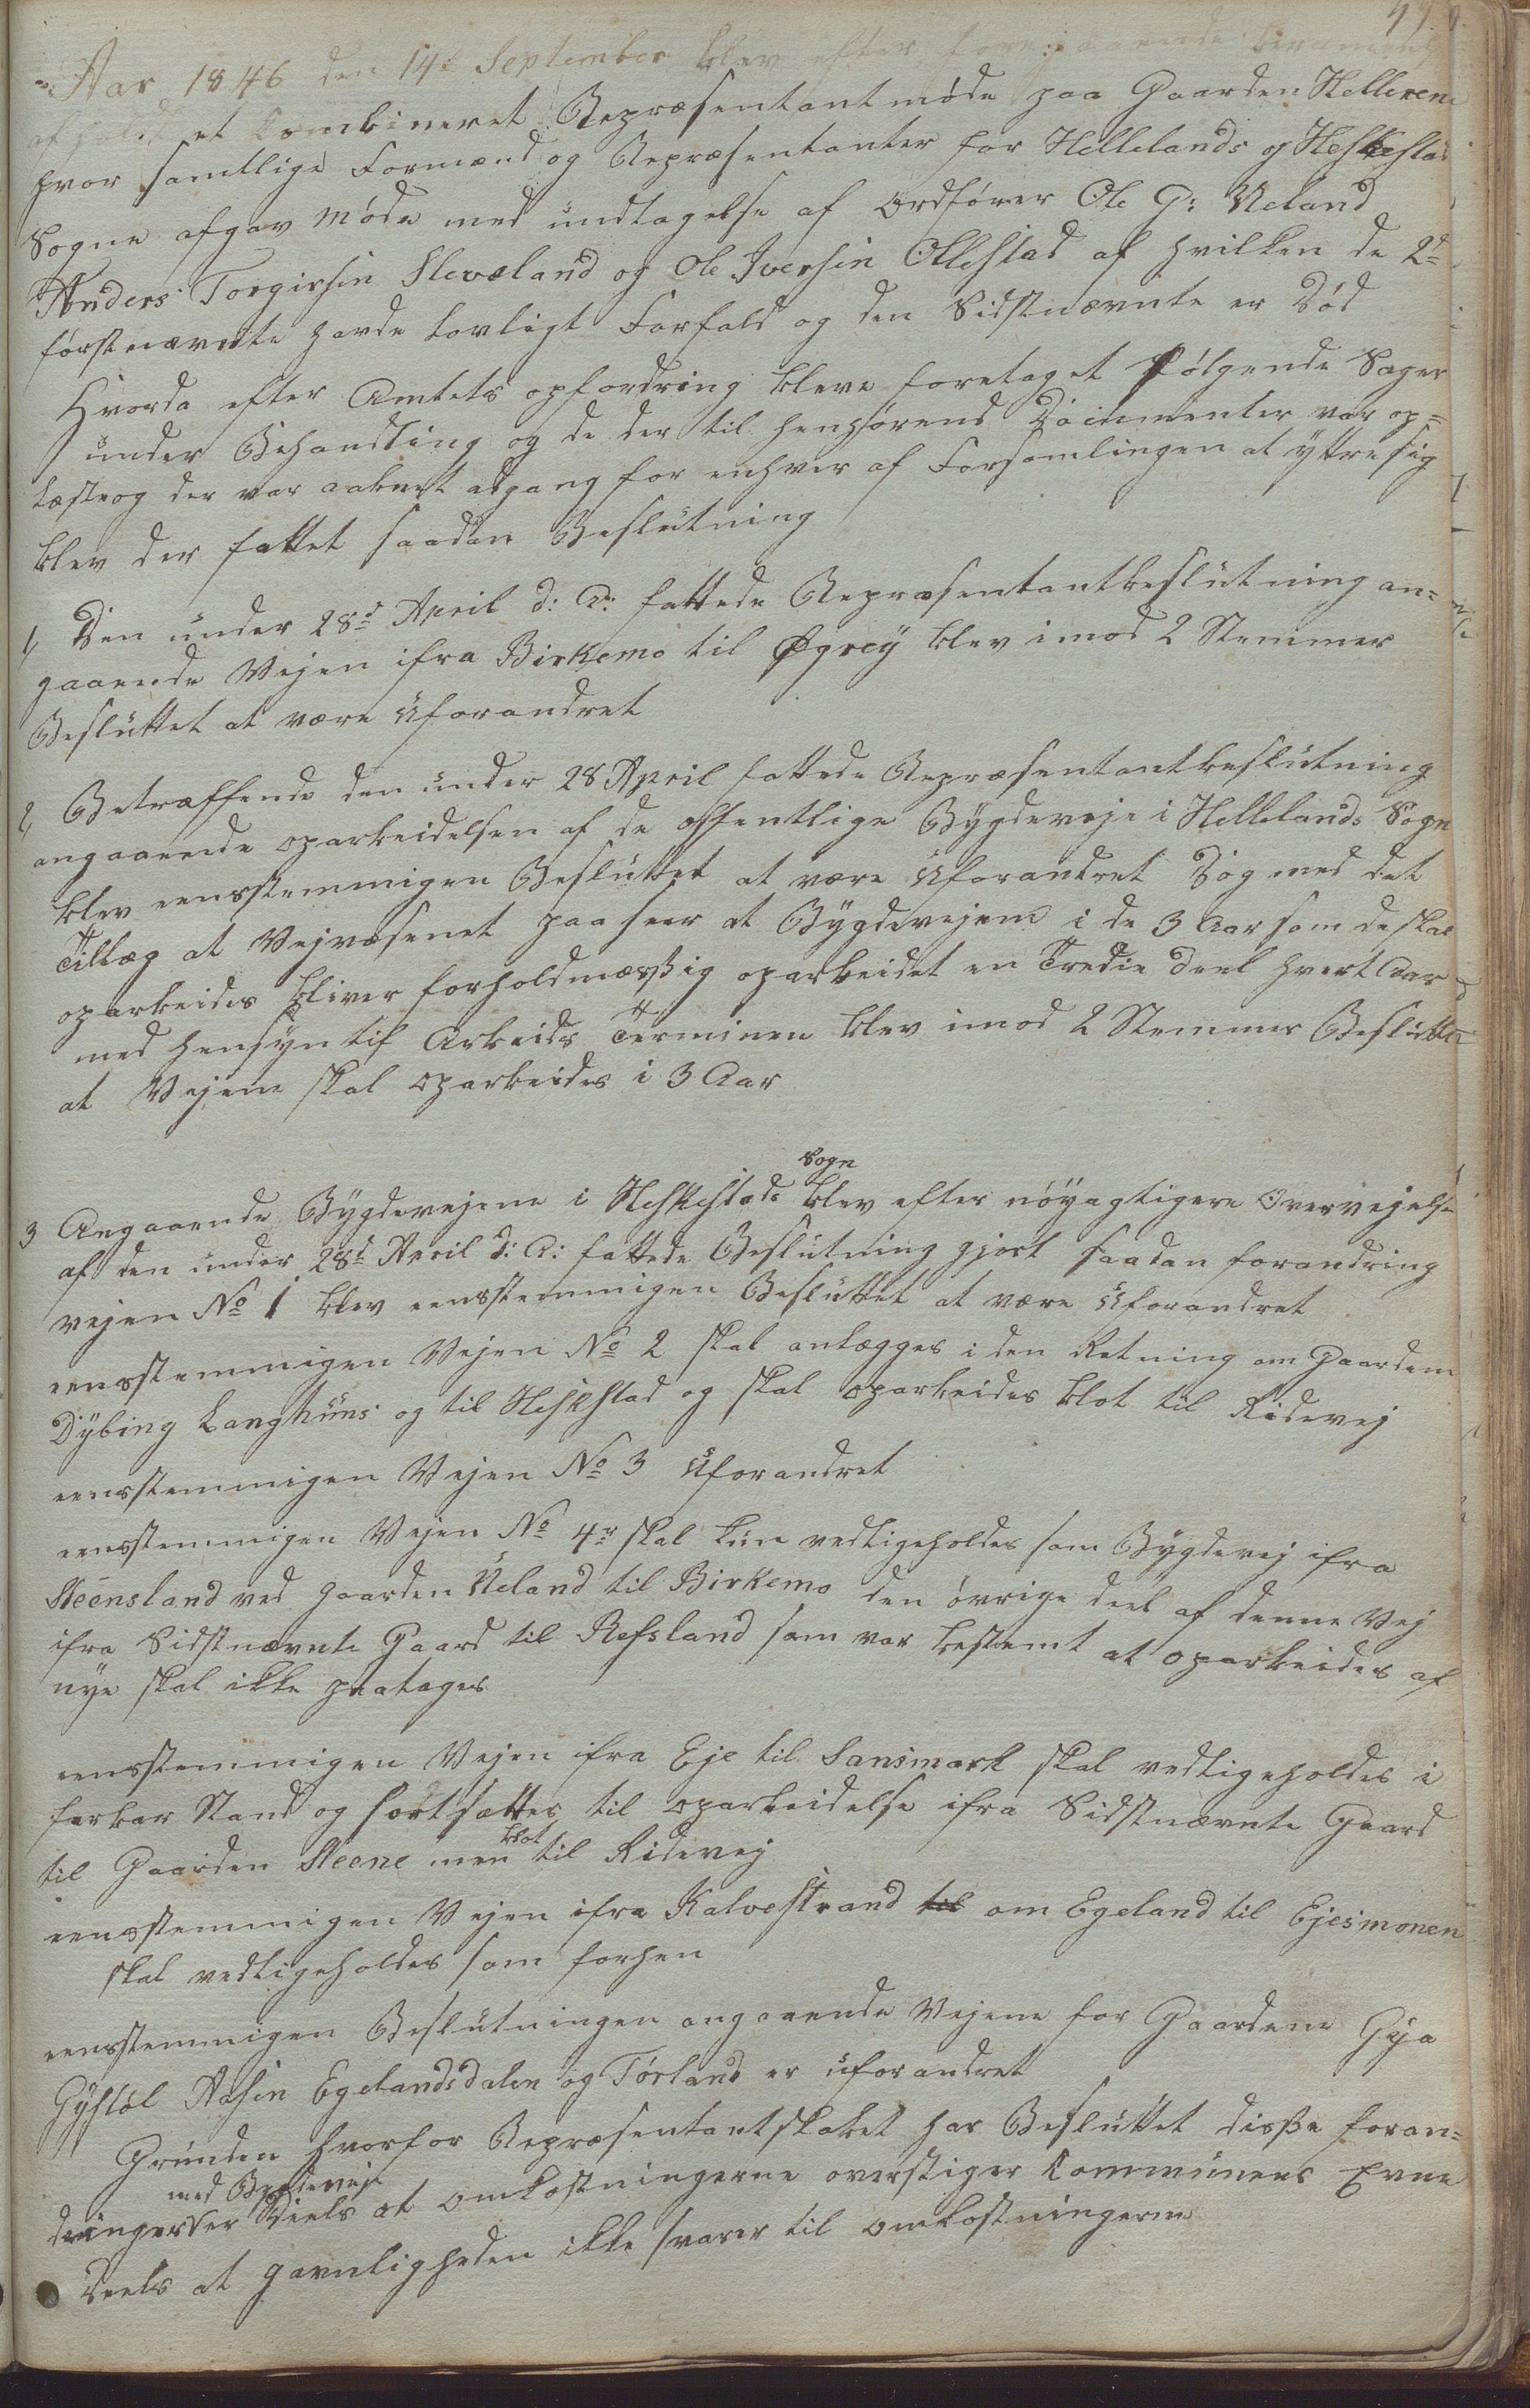 Aar 1846 den 14de September blev efter foregaaende berammelse
afholdt et Combineret Repræsentantmöde paa Gaarden Helleren
hvor samtlige Formænd og Repræsentanter for Hellelands og Heskestad
Sogne afgav möde med undtagelse af Ordförer Ole G: Ueland
Anders Torgirsin Slevæland og Ole Iversin Ollestad af hvilken de 2de
förstnævnte havde Lovligt Forfald og den Sidstnævnte er Död
Hvorda efter Amtets opfordring bleve foretaget Fölgende Sager
under Behandling og de der til henhörend Documenter var op=
læste og der var aabnet adgang for enhver af Forsamlingen at yttre sig
blev der fattet saadan Beslutning
1, Den under 28d April d: A: fattede Repræsentantbeslutning an=
gaaende Vejen ifra Birkemo til Øgrey blev imod 2 Stemmer
Besluttet at være Uforandret
2, Betræffende den under 28 April fattede Repræsentantbeslutning
angaaende oparbeidelsen af de offentlige Bygdeveje i Hellelands Sogn
blev eensstemmigen Besluttet at være Uforandret Dog med det
Tillæg at Vejvæsenet paaseer at Bygdevejene i de 3 Aar som de skal
oparbeides bliver forholdmæssig oparbeidet en Tredie deel hvert Aar
med hensyn til Arbeids Terminen blev imod 2 Stemmer Besluttet
at Vejene skal oparbeides i 3 Aar
3 Angaaende Bygdevejene i Heskestads Sogn blev efter nöyagtigere Overvejelse
af den under 28d April d: A: fattede Beslutning gjort saadan forandring
vejen No 1 blev eensstemmigen Besluttet at være Uforandret
eensstemmigen Vejen No 2 skal anlægges i den Retning om Gaardene
Dybing Langhuus og til Heskestad og skal oparbeides blot til Ridevej
eensstemmigen Vejen No 3 Uforandret
eensstemmigen Vejen No 4r skal kun vedligeholdes som Bygdevej ifra
Steensland ved gaarden Ueland til Birkemo den övrige deel af denne Vej
ifra Sidstnævnte Gaard til Refsland som var bestemt at oparbeides af
nye skal ikke paatages
eensstemmigen Vejen ifra Eje til Sansmark skal vedligeholdes i
farbar Stand og fortsættes til oparbeidelse ifra Sidstnævnte Gaard
til Gaarden Steene men blot til Ridevej
eensstemmigen Vejen ifra Kalvestrand til om Egeland til Ejesmonen
skal vedligeholdes som forhen
eensstemmigen Beslutningen angaaende Vejene for Gaardene Gya
Gystöl Aasin Egelandsdalen og Törland er uforandret
Grunden hvorfor Repræsentantskabet har Besluttet disse foran=
dringer med Bygdeveje er Deels at omkostningerne overstiger Kommunens Evne
Deels at gavnligheden ikke svarer til omkostningerne